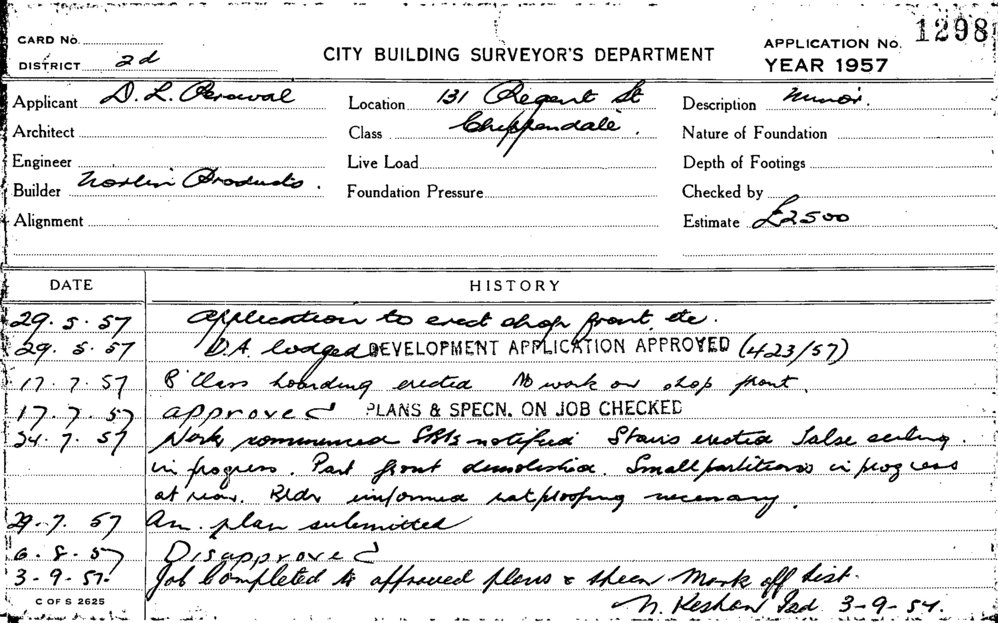 CARD No.
1298
CITY BUILDING SURVEYOR'S DEPARTMENT
APPLICATION No.
DISTRICT 2d
YEAR 1957
Applicant D. L. Perceval
Location 131 Regent St
Description Minor.
Architect
Class Chippendale.
Nature of Foundation
Engineer
Live Load
Depth of Footings
Builder Norlin Products.
Foundation Pressure
Checked by
Alignment
Estimate £2500
DATE
HISTORY
29. 5. 57 Application to erect shop front etc.
29. 5. 57 D.A. lodged DEVELOPMENT APPLICATION APPROVED (423/57)
17. 7. 57 B Class hoarding erected No work on shop front.
17. 7. 57 approved PLANS & SPECN. ON JOB CHECKED
24. 7. 57 Work commenced notified Stairs erected False ceiling
in progress. Part front demolished. Small partitions in progress
at rear. Bldr informed ratproofing necessary.
29. 7. 57 Am. plan submitted
6. 8. 57 Disapproved
3-9-57. Job Completed to approved plans & Mark off List.
3-9-57.
C OF S 2625